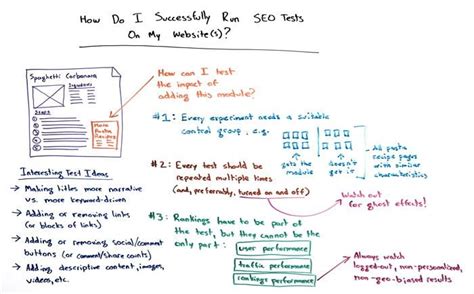 How Do I Successfully Run SEO Tests
On My Website(s)?
Spaghetti Carbonara
Ingredients
Steps
More
Pasta
Recipes
How can I test
the impact of
adding this module?
#1: Every experiment needs a suitable
control group, e.g.
gets the
module
doesn't
get it
All pasta
recipe pages
with similar
characteristics
#2: Every test should be
repeated multiple times
(and, preferrably, turned on and off)
Watch out
for ghost effects!
#3: Rankings have to be part of
the test, but they cannot be the
only part:
user performance
traffic performance
rankings performance
Always watch
logged-out, non-personalized,
non-geo-biased results
Interesting Test Ideas:
→ Making titles more narrative
vs. more keyword-driven
→ Adding or removing links
(or blocks of links)
→ Adding or removing social/comment
buttons (or comment/share counts)
→ Adding descriptive content, images,
videos, etc.